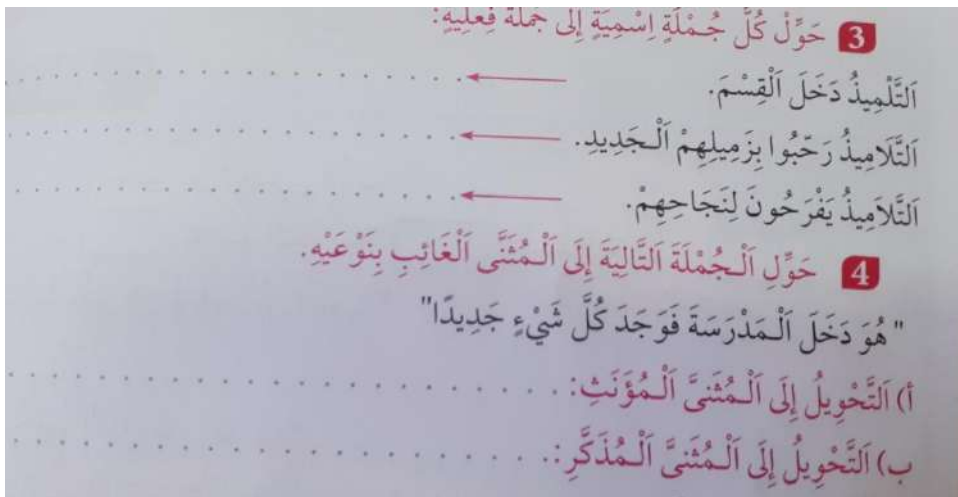 3 حَوِّلْ كُلَّ جُمْلَةٍ اِسْمِيَّةٍ إِلَى جُمْلَةٍ فِعْلِيَّةٍ:
اَلتِّلْمِيذُ دَخَلَ اَلْقِسْمَ.
اَلتَّلَامِيذُ رَحَّبُوا بِزَمِيلِهِمْ اَلْجَدِيدِ.
اَلتَّلَامِيذُ يَفْرَحُونَ لِنَجَاحِهِمْ.
4 حَوِّلِ اَلْجُمْلَةَ اَلتَّالِيَةَ إِلَى اَلْمُثَنَّى اَلْغَائِبِ بِنَوْعَيْهِ.
" هُوَ دَخَلَ اَلْمَدْرَسَةَ فَوَجَدَ كُلَّ شَيْءٍ جَدِيدًا"
أ) اَلتَّحْوِيلُ إِلَى اَلْمُثَنىَّ اَلْمُؤَنَّثِ:
ب) اَلتَّحْوِيلُ إِلَى اَلْمُثَنىَّ اَلْمُذَكَّرِ: